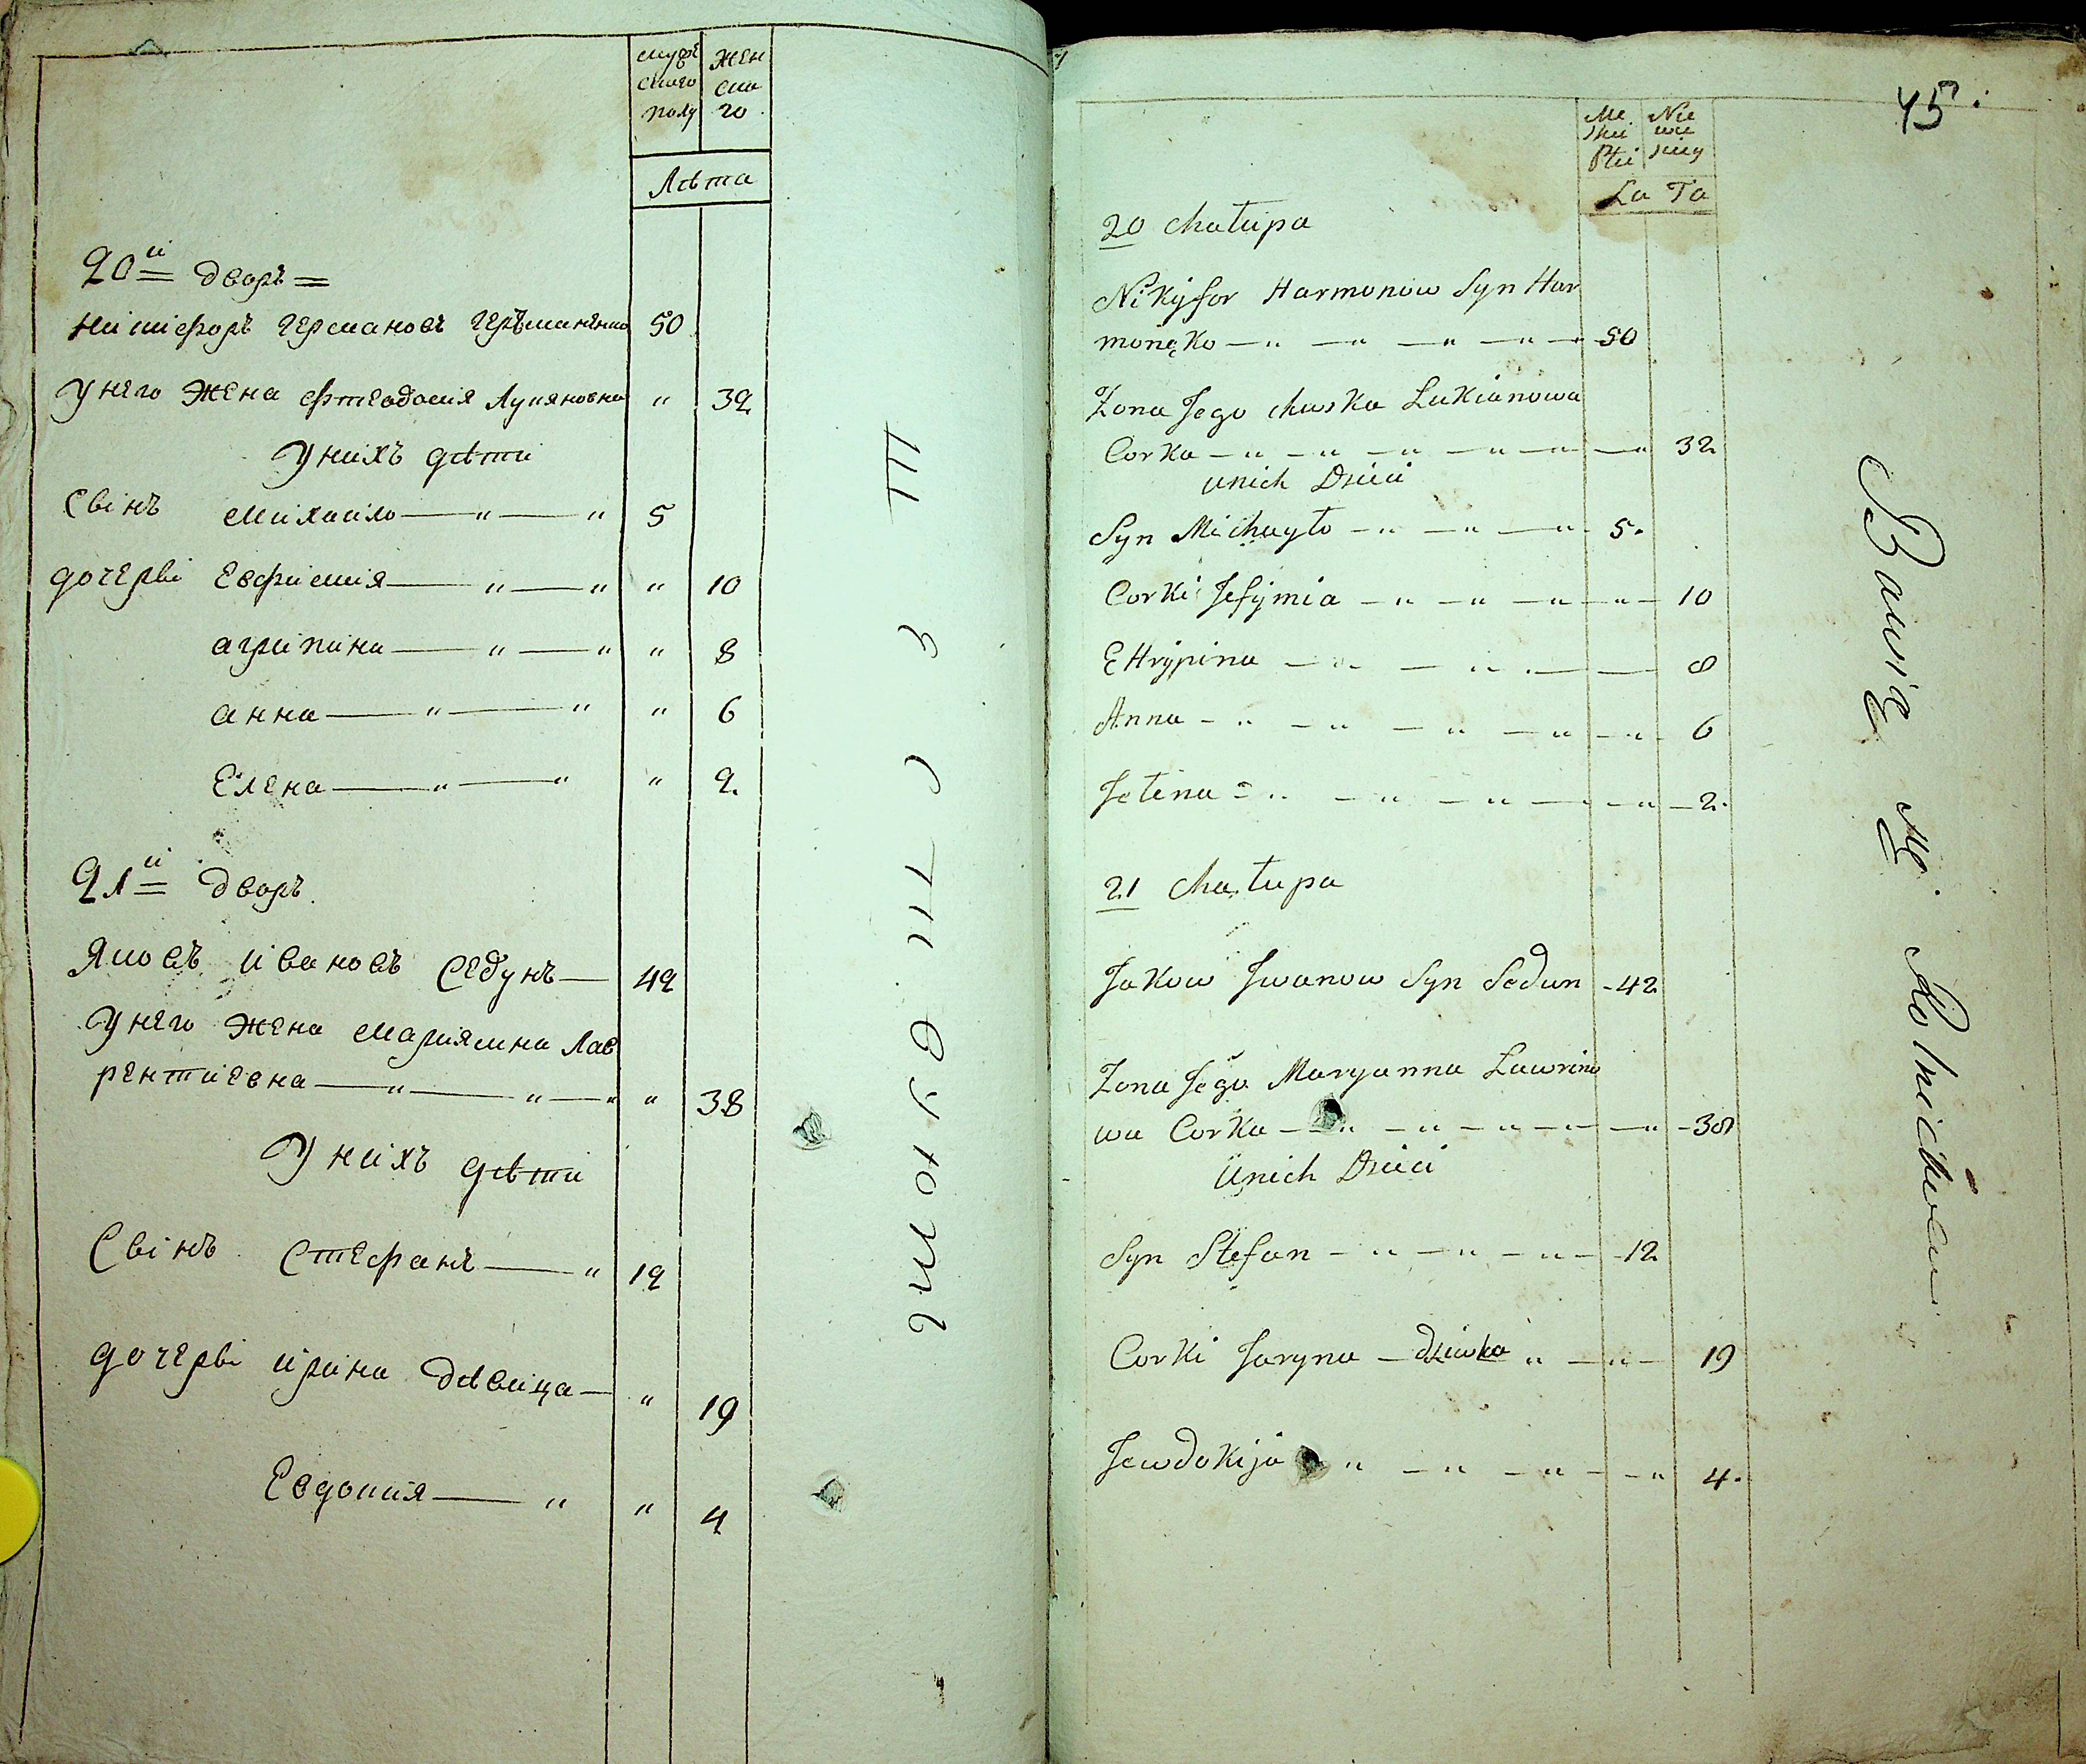 мужескаго полу
женскаго
Лѣта
20й дворъ
Никифоръ Германовъ Германенко 50
У него жена Фтеодосия Лукяновна " 32
У нихъ дѣти
Свінъ Михаило — " — " 5
дочерві Евфимия — " — " " 10
агрипина — " — " " 8
анна — " — " " 6
Елена — " — " " 2.
21й дворъ.
Яковъ Ивановъ Седунъ — 42
У него жена Мариямна Лав
рентиевна — " — " — " " 38
У нихъ дѣти
Свінъ Стефанъ — " 12
дочерві ирина дѣвица — " 19
Евдокия — " " 4
45
Męskiey Płci
Niewieściey
La Ta
20 Chałupa
Nikÿfor Harmonow Syn Har
monęko — " — " — " — " — 50
Zona Jego Chwska Łukianowa
Corka — " — " — " — " — " 32
U nich Dzieci
Syn Michayło — " — " — " 5.
Corki Jefÿmia — " — " — " — 10
Hrÿpina — " — " — 8
Anna — " — " — " — " 6
Jełena — " — " — " — " 2.
21 Chałupa
Jakow Jwanow Syn Sedun - 42
Zona Jego Maryanna Ławrino
wa Corka — " — " — " — " — 38
U nich Dzieci
Syn Stefan — " — " — " — 12
Corki Jaryna — dziewka " — " — 19
Jewdokija " — " — " — " 4.